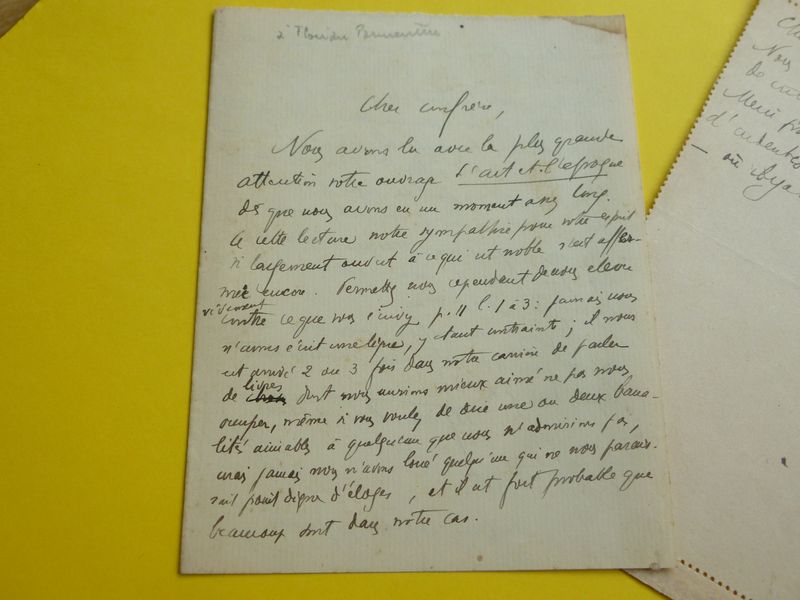 à Florian Parmentier
Cher confrère,
Nous avons lu avec la plus grande
attention votre ouvrage L'art et l'époque
dès que nous avons eu un moment assez long.
A cette lecture notre sympathie pour votre esprit
si largement ouvert à ce qui est noble s'est affer-
mie encore. Permettez nous cependant de nous élever
vivement
contre ce que vous écrivez p. 11 l. 1 à 3 : jamais nous
n'avons écrit une ligne, y étant contraints ; il nous
est arrivé 2 ou 3 fois dans notre carrière de parler
livres
de dont nous aurions mieux aimé ne pas nous
occuper, même si vous voulez de dire une ou deux bana-
lités aimables à quelqu'un que nous n'admirions pas,
mais jamais nous n'avons loué quelqu'un qui ne nous parais-
sait point digne d'éloges, et il est fort probable que
beaucoup sont dans notre cas.
Che
Nous
de
Merci
d'
— ou